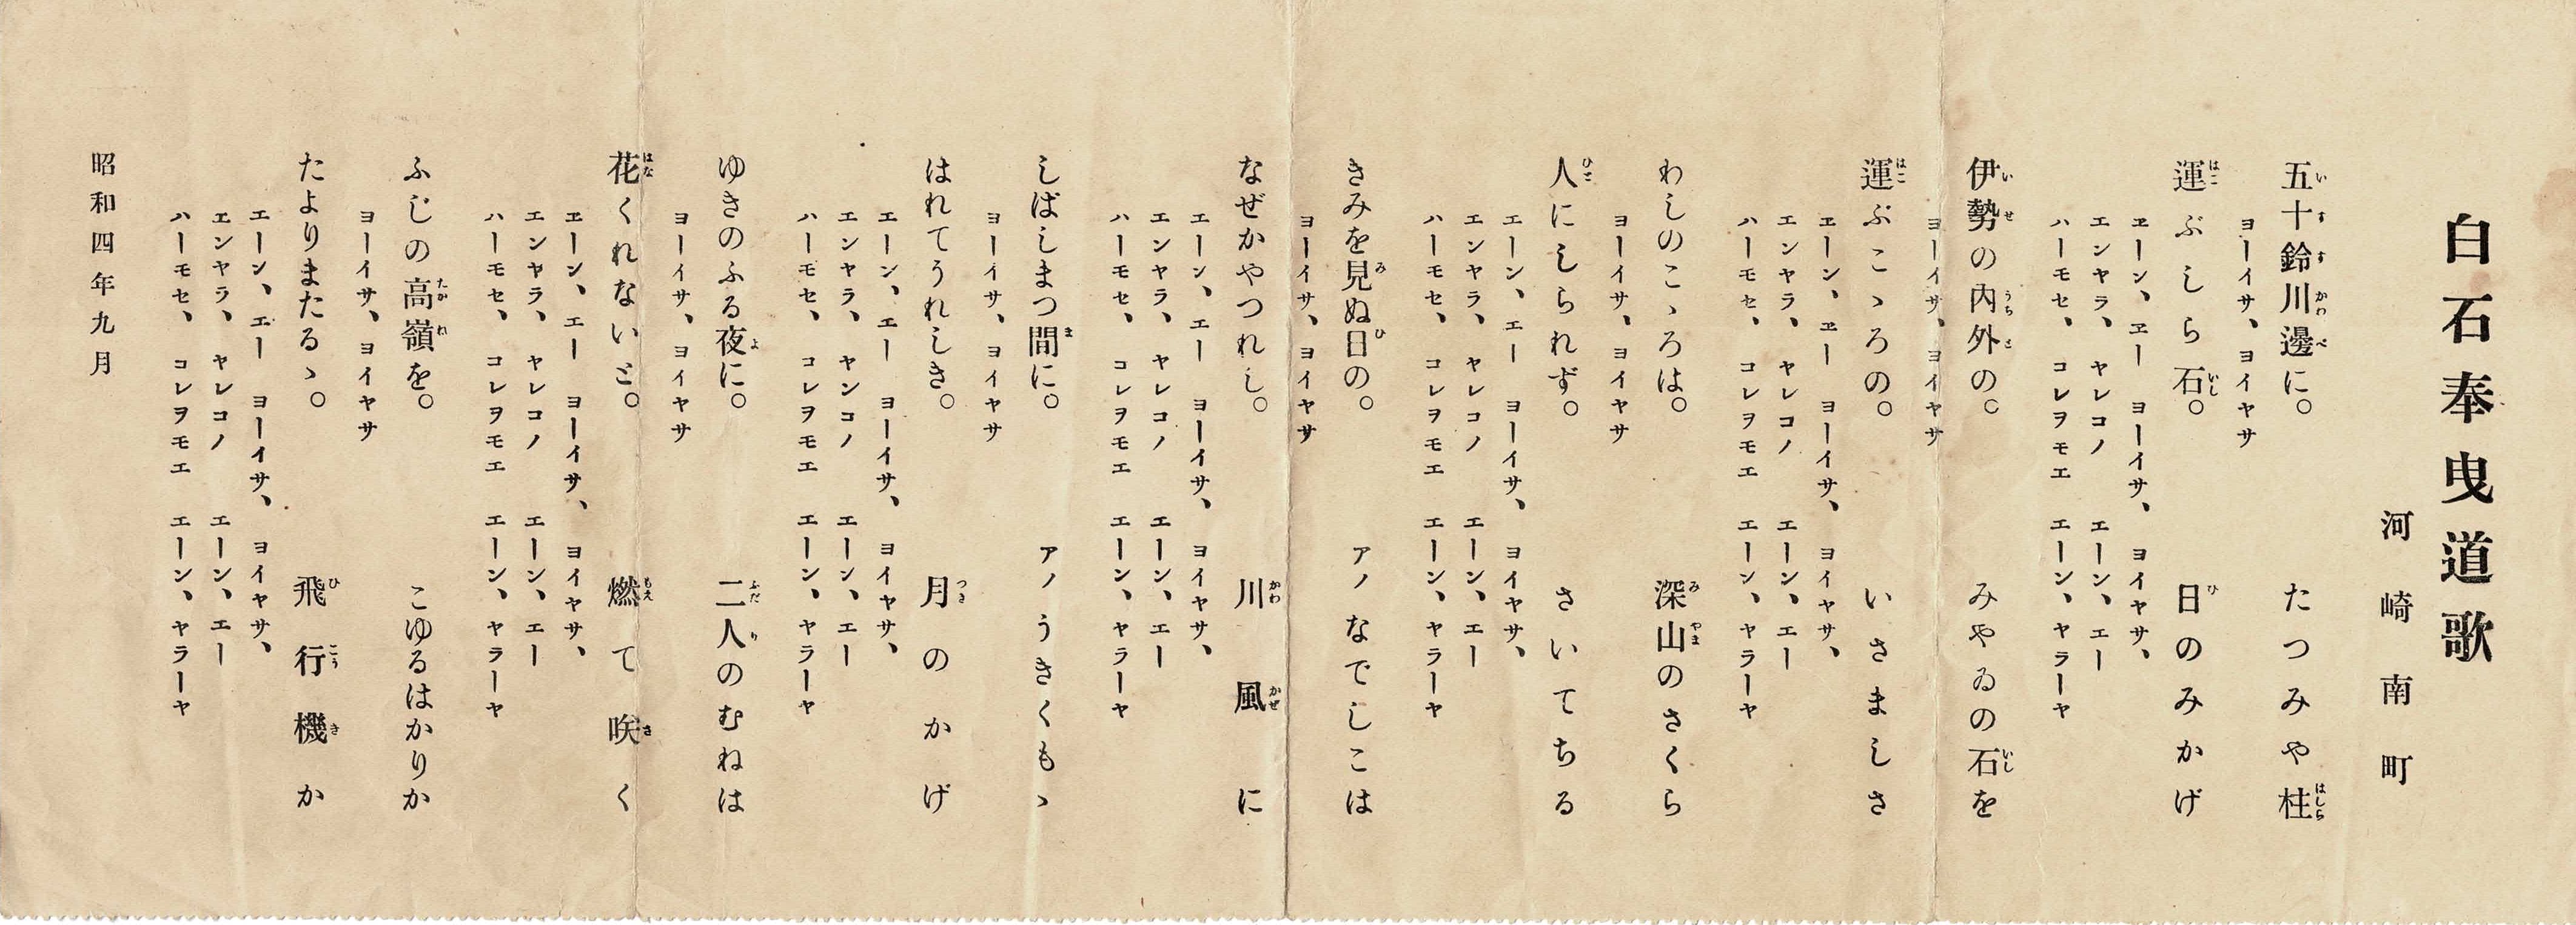 白石奉曳道歌
河崎南町
五十鈴川邊に。 たつみや柱
ヨーイサ、ヨイヤサ
運ぶしら石。 日のみかげ
エーン、エー ヨーイサ、ヨイヤサ、
エンヤラ、ヤレコノ エーン、エー
ハーモセ、コレヲモエ エーン、ヤラーヤ
伊勢の内外の。 みやゐの石を
ヨーイサ、ヨイヤサ
運ぶこゝろの。 いさましさ
エーン、エー ヨーイサ、ヨイヤサ、
エンヤラ、ヤレコノ エーン、エー
ハーモセ、コレヲモエ エーン、ヤラーヤ
わしのこゝろは。 深山のさくら
ヨーイサ、ヨイヤサ
人にしられず。 さいてちる
エーン、エー ヨーイサ、ヨイヤサ、
エンヤラ、ヤレコノ エーン、エー
ハーモセ、コレヲモエ エーン、ヤラーヤ
きみを見ぬ日の。 アノなでしこは
ヨーイサ、ヨイヤサ
なぜかやつれし。 川風に
エーン、エー ヨーイサ、ヨイヤサ、
エンヤラ、ヤレコノ エーン、エー
ハーモセ、コレヲモエ エーン、ヤラーヤ
しばしまつ間に。 アノうきくもゝ
ヨーイサ、ヨイヤサ
はれてうれしき。 月のかげ
エーン、エー ヨーイサ、ヨイヤサ、
エンヤラ、ヤンコノ エーン、エー
ハーモセ、コレヲモエ エーン、ヤラーヤ
ゆきのふる夜に。 二人のむねは
ヨーイサ、ヨイヤサ
花くれないと。 燃て咲く
エーン、エー ヨーイサ、ヨイヤサ、
エンヤラ、ヤレコノ エーン、エー
ハーモセ、コレヲモエ エーン、ヤラーヤ
ふじの高嶺を。 こゆるはかりか
ヨーイサ、ヨイヤサ
たよりまたるゝ。 飛行機か
エーン、エー ヨーイサ、ヨイヤサ、
エンヤラ、ヤレコノ エーン、エー
ハーモセ、コレヲモエ エーン、ヤラーヤ
昭和四年九月